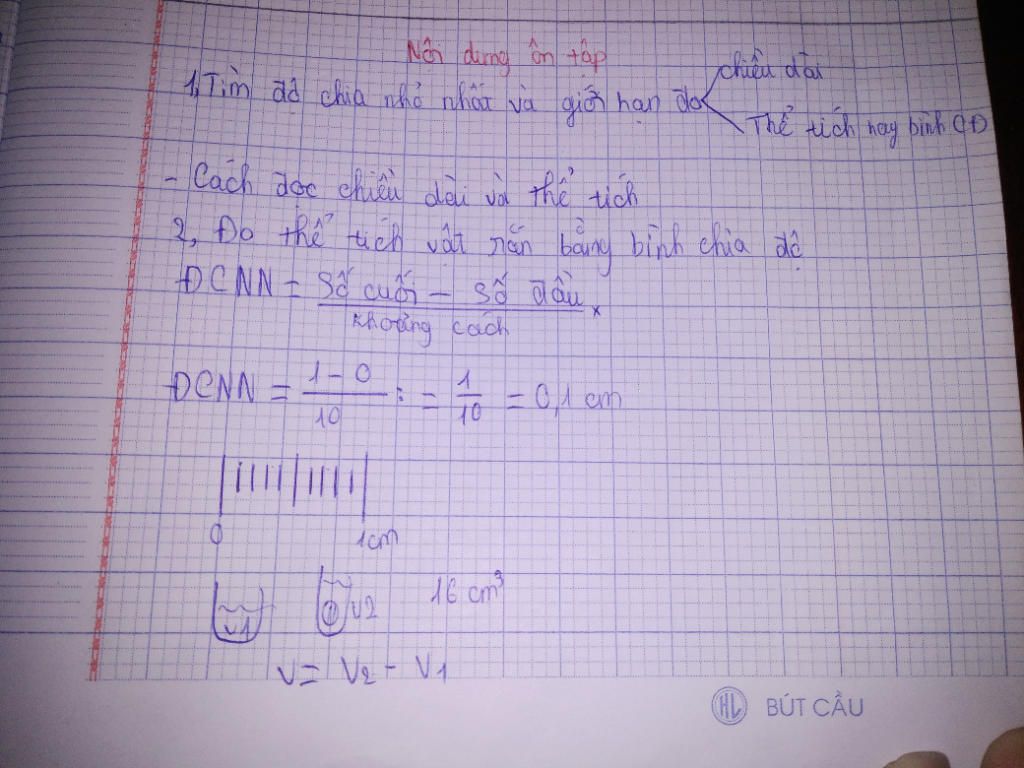 Nội dung ôn tập
1, Tìm độ chia nhỏ nhất và giới hạn đo
chiều dài
Thể tích hay bình CĐ
- Cách đọc chiều dài và thể tích
2, Đo thể tích vật rắn bằng bình chia độ
ĐCNN = Số cuối - số đầu
khoảng cách
ĐCNN = 1 - 0 / 10 : = 1 / 10 = 0,1 cm
0 1cm
V1 V2 16 cm³
V = V2 - V1
HL BÚT CẦU